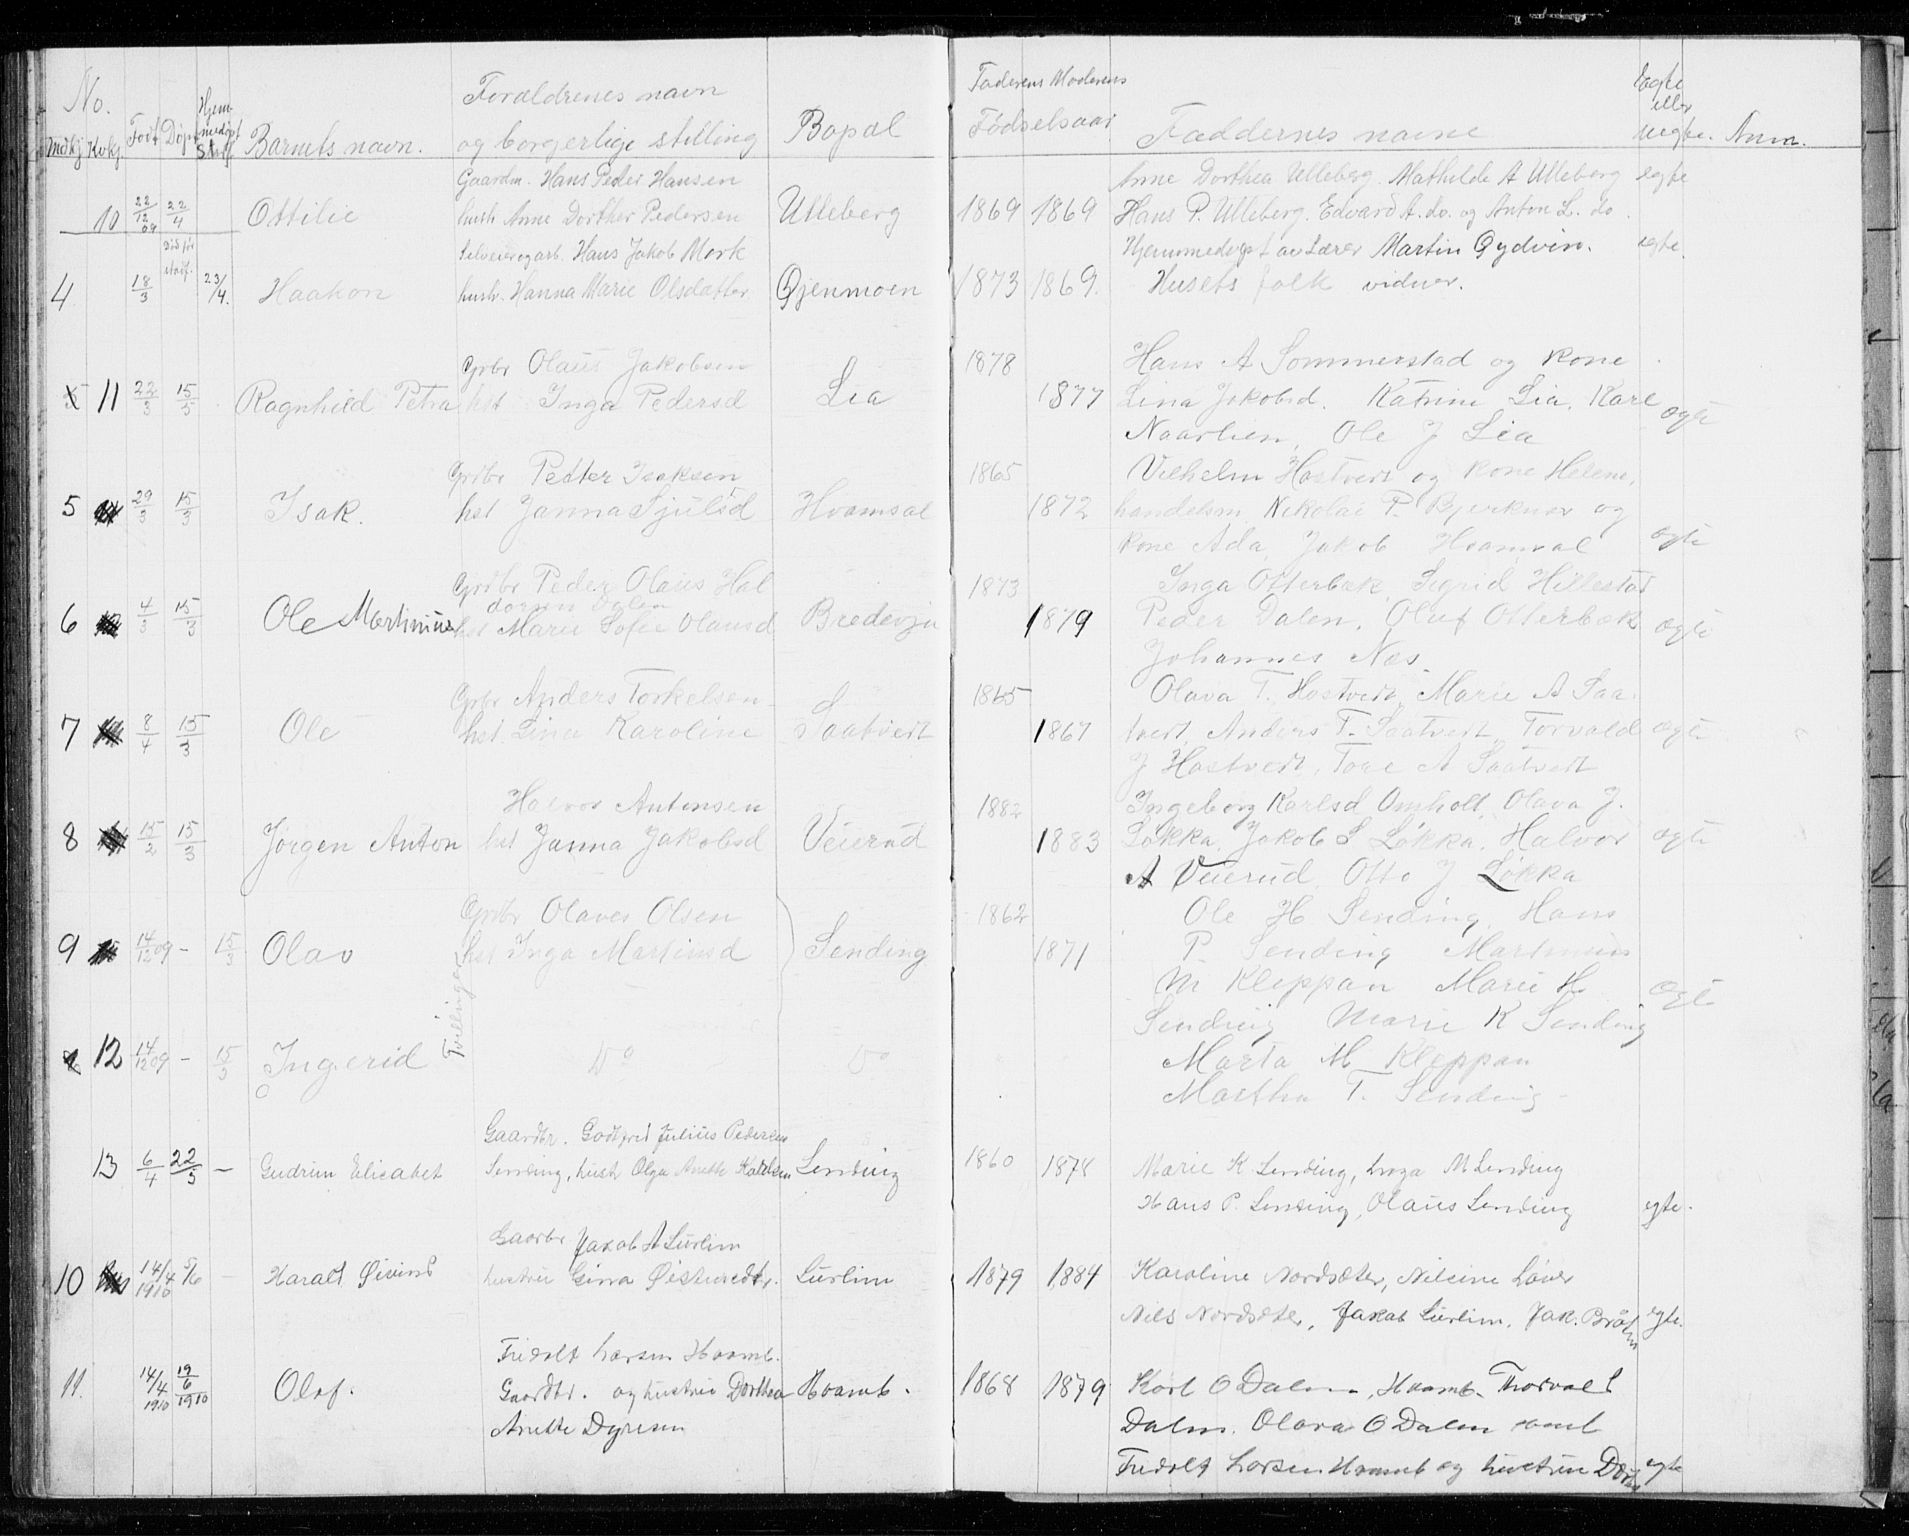 No. Mdkj Kvkj. Født Døpt Hjemmedøpt Stdf. Barnets navn. Forældrenes navn og borgerlige stilling Bopæl Faderens Moderens Fødselsaar Faddernes navne Egte eller uegte. Anm.
Gaardm. Hans Peder Hansen Anne Dorthea Ulleberg. Mathilde A Ulleberg egte
10 22/12 09 22/4 Ottilie hustr Anne Dorthea Pedersen Ulleberg 1869 1869 Hans P. Ulleberg. Edvard A. do. og Anton L. do.
Død før stadf. Selveier og arb. Hans Jakob Mork Hjemmedøpt av Lærer Martin Gydvin. egte.
4 18/3 23/4. Haakon hustr. Hanna Marie Olsdatter Gjenmoen 1873 1869. Husets folk vidner.
Grbr Olaus Jakobsen 1878 Hans A Sommerstad og kone
11 22/3 15/5 Ragnhild Petra hst Inga Pedersd Lia 1877 Lina Jakobsd. Katrine Lia, Karl ægte
Naarlien, Ole J Lia
Grdbr Petter Isaksen 1865 Vilhelm Hostvedt og kone Helene,
5 29/3 15/3 Isak. hst Janna Sjulsd Hvamsal 1872 handelsm. Nikolai P. Bjerknær og
kone Ada, Jakob Hvamsal ægte
Grdbr Peder Olaus Hal 1873 Inga Otterbæk, Sigrid Hillestad
dorsen Dalen
6 4/3 15/3 Ole Martinius hst Marie Sofie Olausd Bredevju 1879 Peder Dalen, Oluf Otterbæk ægte
Johannes Næs.
Grbr Anders Torkelsen 1865 Olava T. Hostvedt, Marie A Saa
7 8/4 15/3 Ole hst Lina Karoline Saatvedt 1867 tvedt, Anders T. Saatvedt, Torvald ægte
J Hostvedt, Tore A Saatvedt
Halvor Antonsen 1882 Ingeborg Karlsd Omholt, Olava J.
8 15/2 15/3 Jörgen Anton hst Janna Jakobsd Veierud 1883 Løkka, Jakob S Løkka, Halvor ægte
A Veierud, Otto J Løkka
Grdbr Olaves Olsen 1862 Ole H Sending, Hans
9 14/12 09 - 15/3 Olav hst Inga Martinsd Sending 1871 P. Sending Martinius
M Kleppan Marie H ægte
Tvillinger Sending Marie K Sending
12 14/12 09 - 15/3 Ingerid Do Do Marta M Kleppan
Martha T. Sending
Gaardbr. Godtfred Julius Pedersen
13 6/4 22/5 - Gudrun Elisabet Sending, hustr Olga Anette Karlsen Sending 1860 1878 Marie K Sending, Inga M Sending
Hans P. Sending, Olaus Sending egte.
Gaardbr Jakob A Lurlim
10 14/4 1910 5/6 - Harald Øivind hustru Gina Øistensdtr. Lurlim 1879 1884 Karoline Nordsæter, Nilsine Löver
Nils Nordsæter, Jakob Lurlim, Jak. Bråten egte.
Fredolf Larsen Hvamb.
11. 14/4 1910 19/6 1910 Olaf. Gaardbr. og hustru Dorthea Hvamb. 1868 1879 Karl O Dalen, Hvamb. Thorvald
Anette Dyresen Dalen. Olava O Dalen samt
Fredolf Larsen Hvamb og hustru Dorthea egte